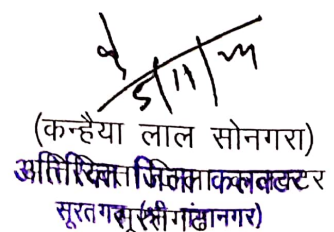 5/11/24
(कन्हैया लाल सोनगरा)
अतिरिक्त जिला कलक्टर
सूरतगढ़ (श्रीगंगानगर)